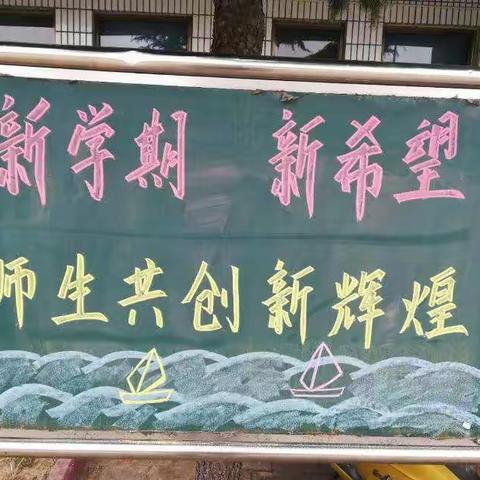 新学期 新希望
师生共创新辉煌